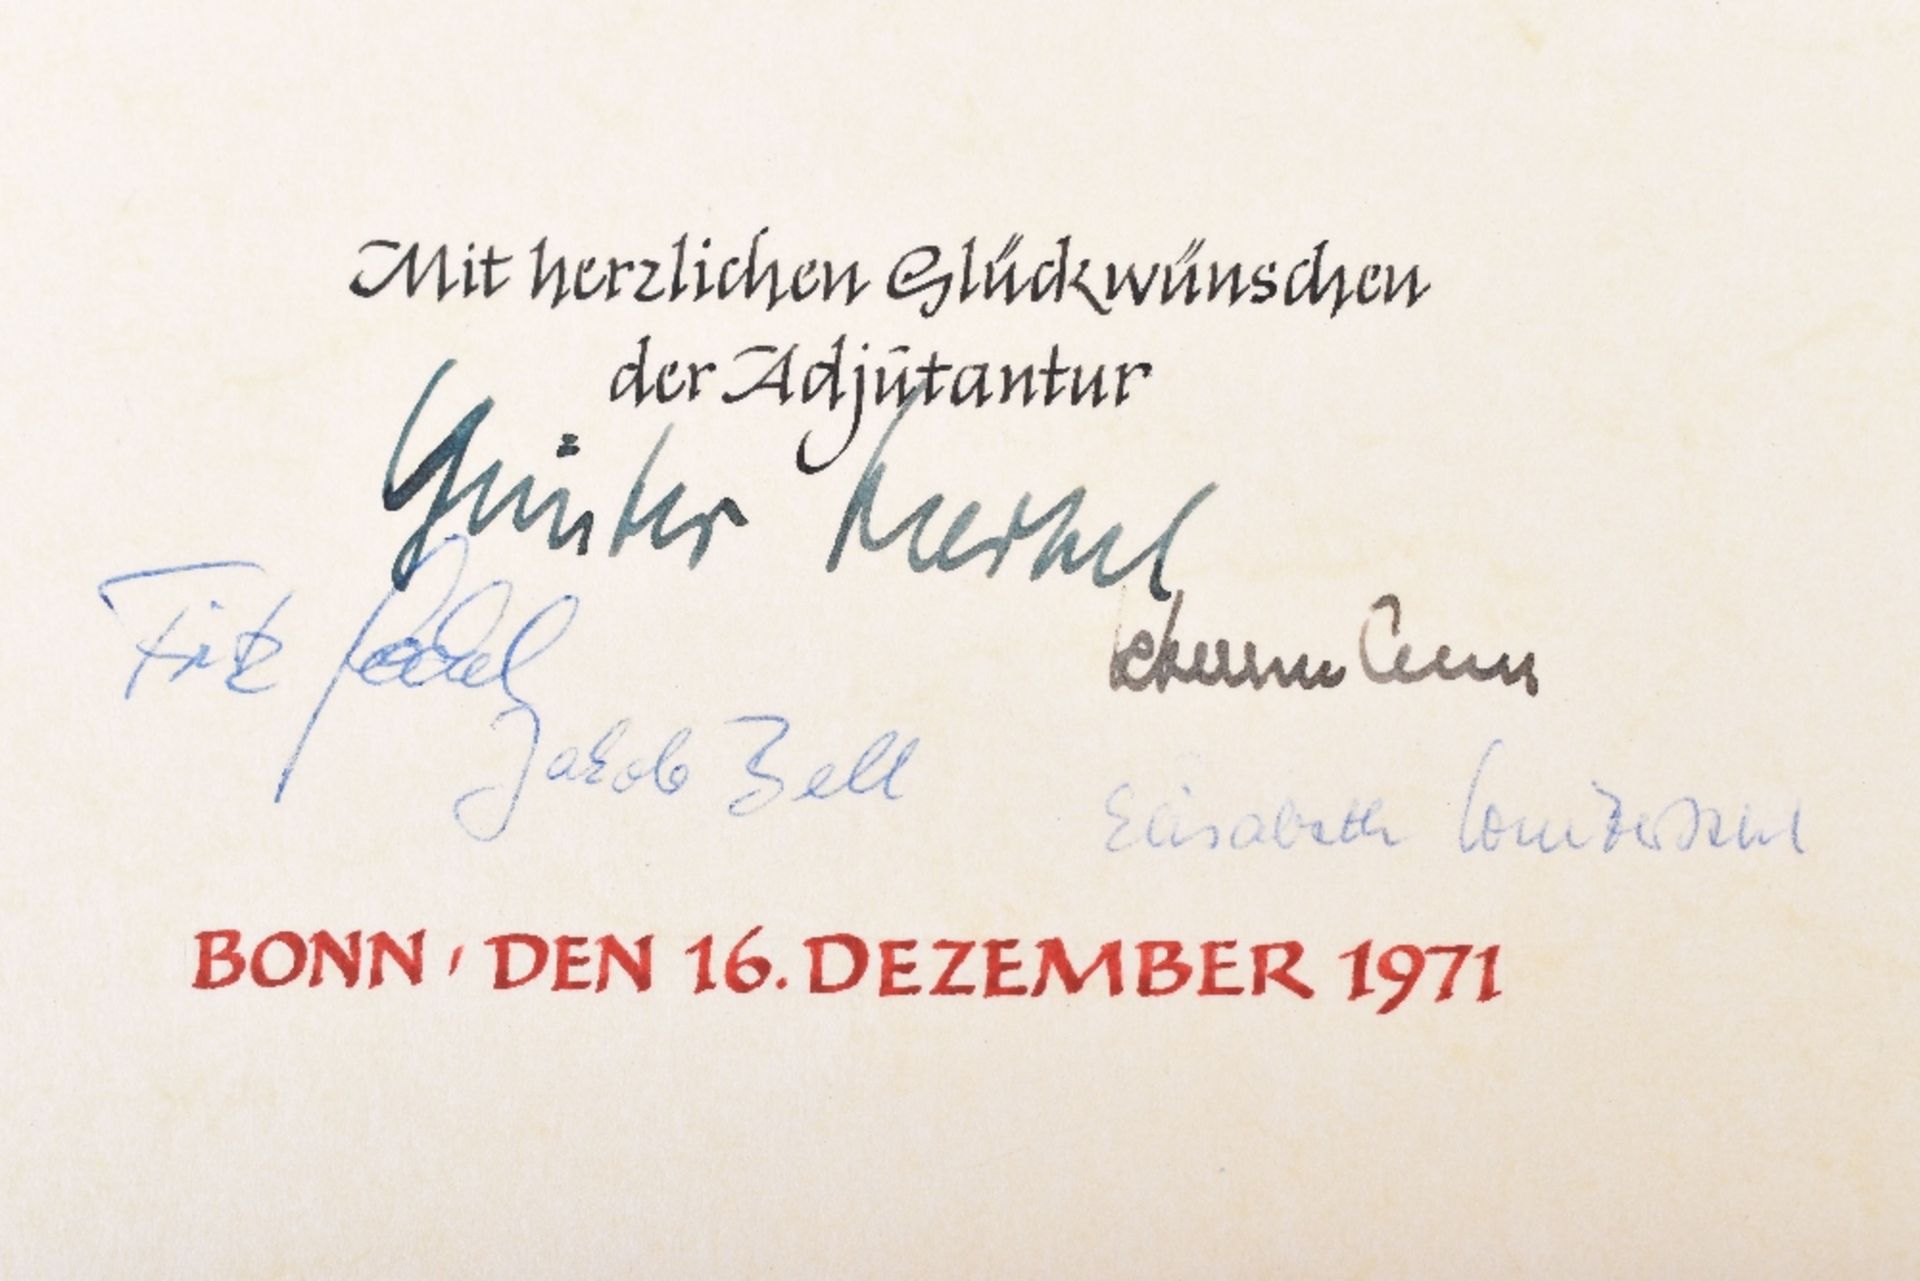 Mit herzlichen Glückwünschen
der Adjutantur
Günter
Fritz
Jakob Zell
Elisabeth
BONN, DEN 16. DEZEMBER 1971